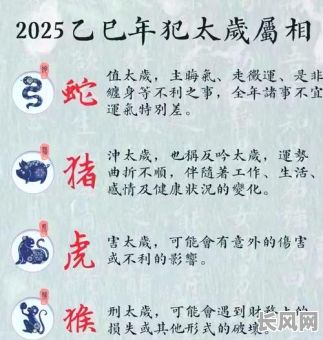 2025乙巳年犯太歲屬相
蛇
值太歲，主晦氣、走黴運、是非
纏身等不利之事，全年諸事不宜
運氣特別差。
豬
沖太歲，也稱反吟太歲，運勢
曲折不順，伴隨著工作、生活、
感情及健康狀況的變化。
虎
害太歲，可能會有意外的傷害
或不利的影響。
猴
刑太歲，可能會遇到財務上的
損失或其他形式的破壞。
长风网